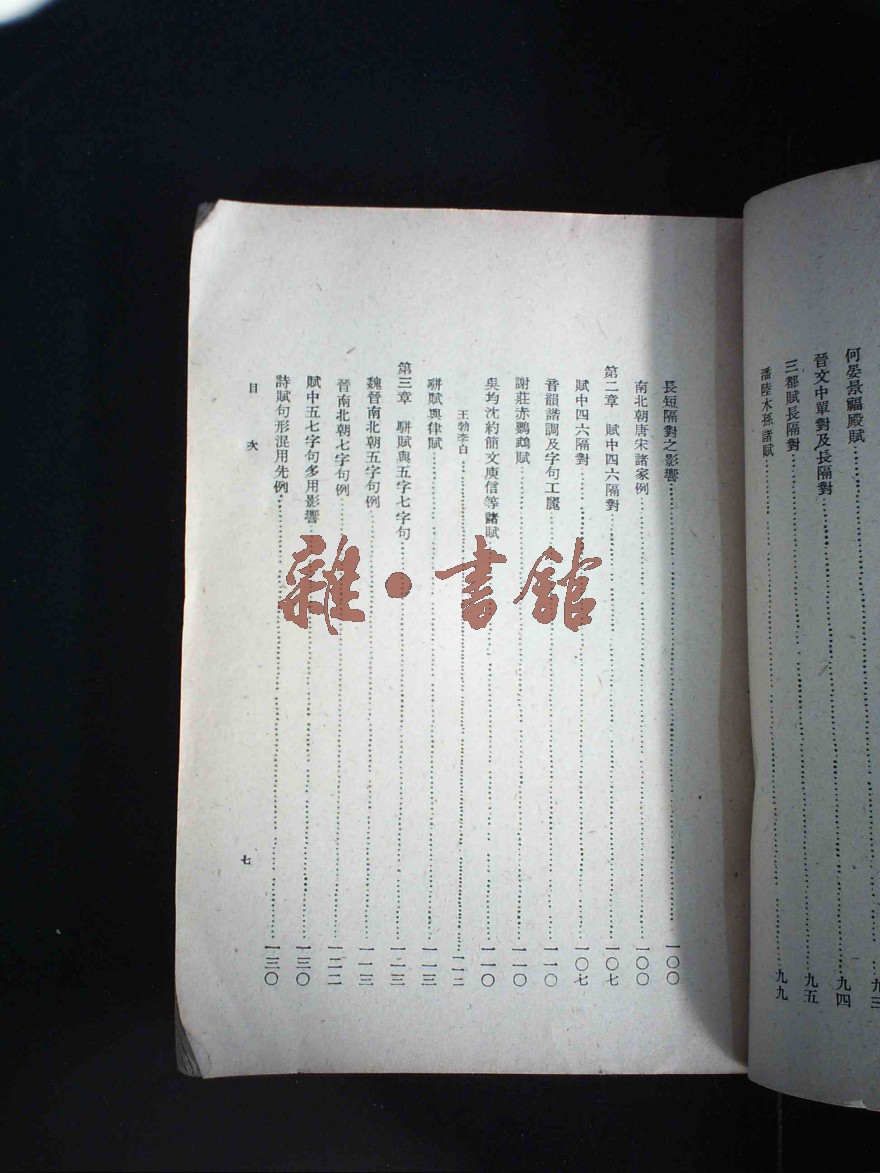 何晏景福殿賦……九三
晉文中單對及長隔對……九四
三都賦長隔對……九五
潘陸木孫諸賦……九九
長短隔對之影響……一〇〇
南北朝唐宋諸家例……一〇〇
第二章 賦中四六隔對……一〇七
賦中四六隔對……一〇七
音韻諧調及字句工麗……一一〇
謝莊赤鸚鵡賦……一一〇
吳均沈約簡文庾信等諸賦……一一〇
王勃李白……一一二
駢賦與律賦……一一三
第三章 駢賦與五字七字句……一一三
魏晉南北朝五字句例……一一三
晉南北朝七字句例……一二二
賦中五七字句多用影響……一三〇
詩賦句形混用先例……一三〇
目次
七
雜·書館